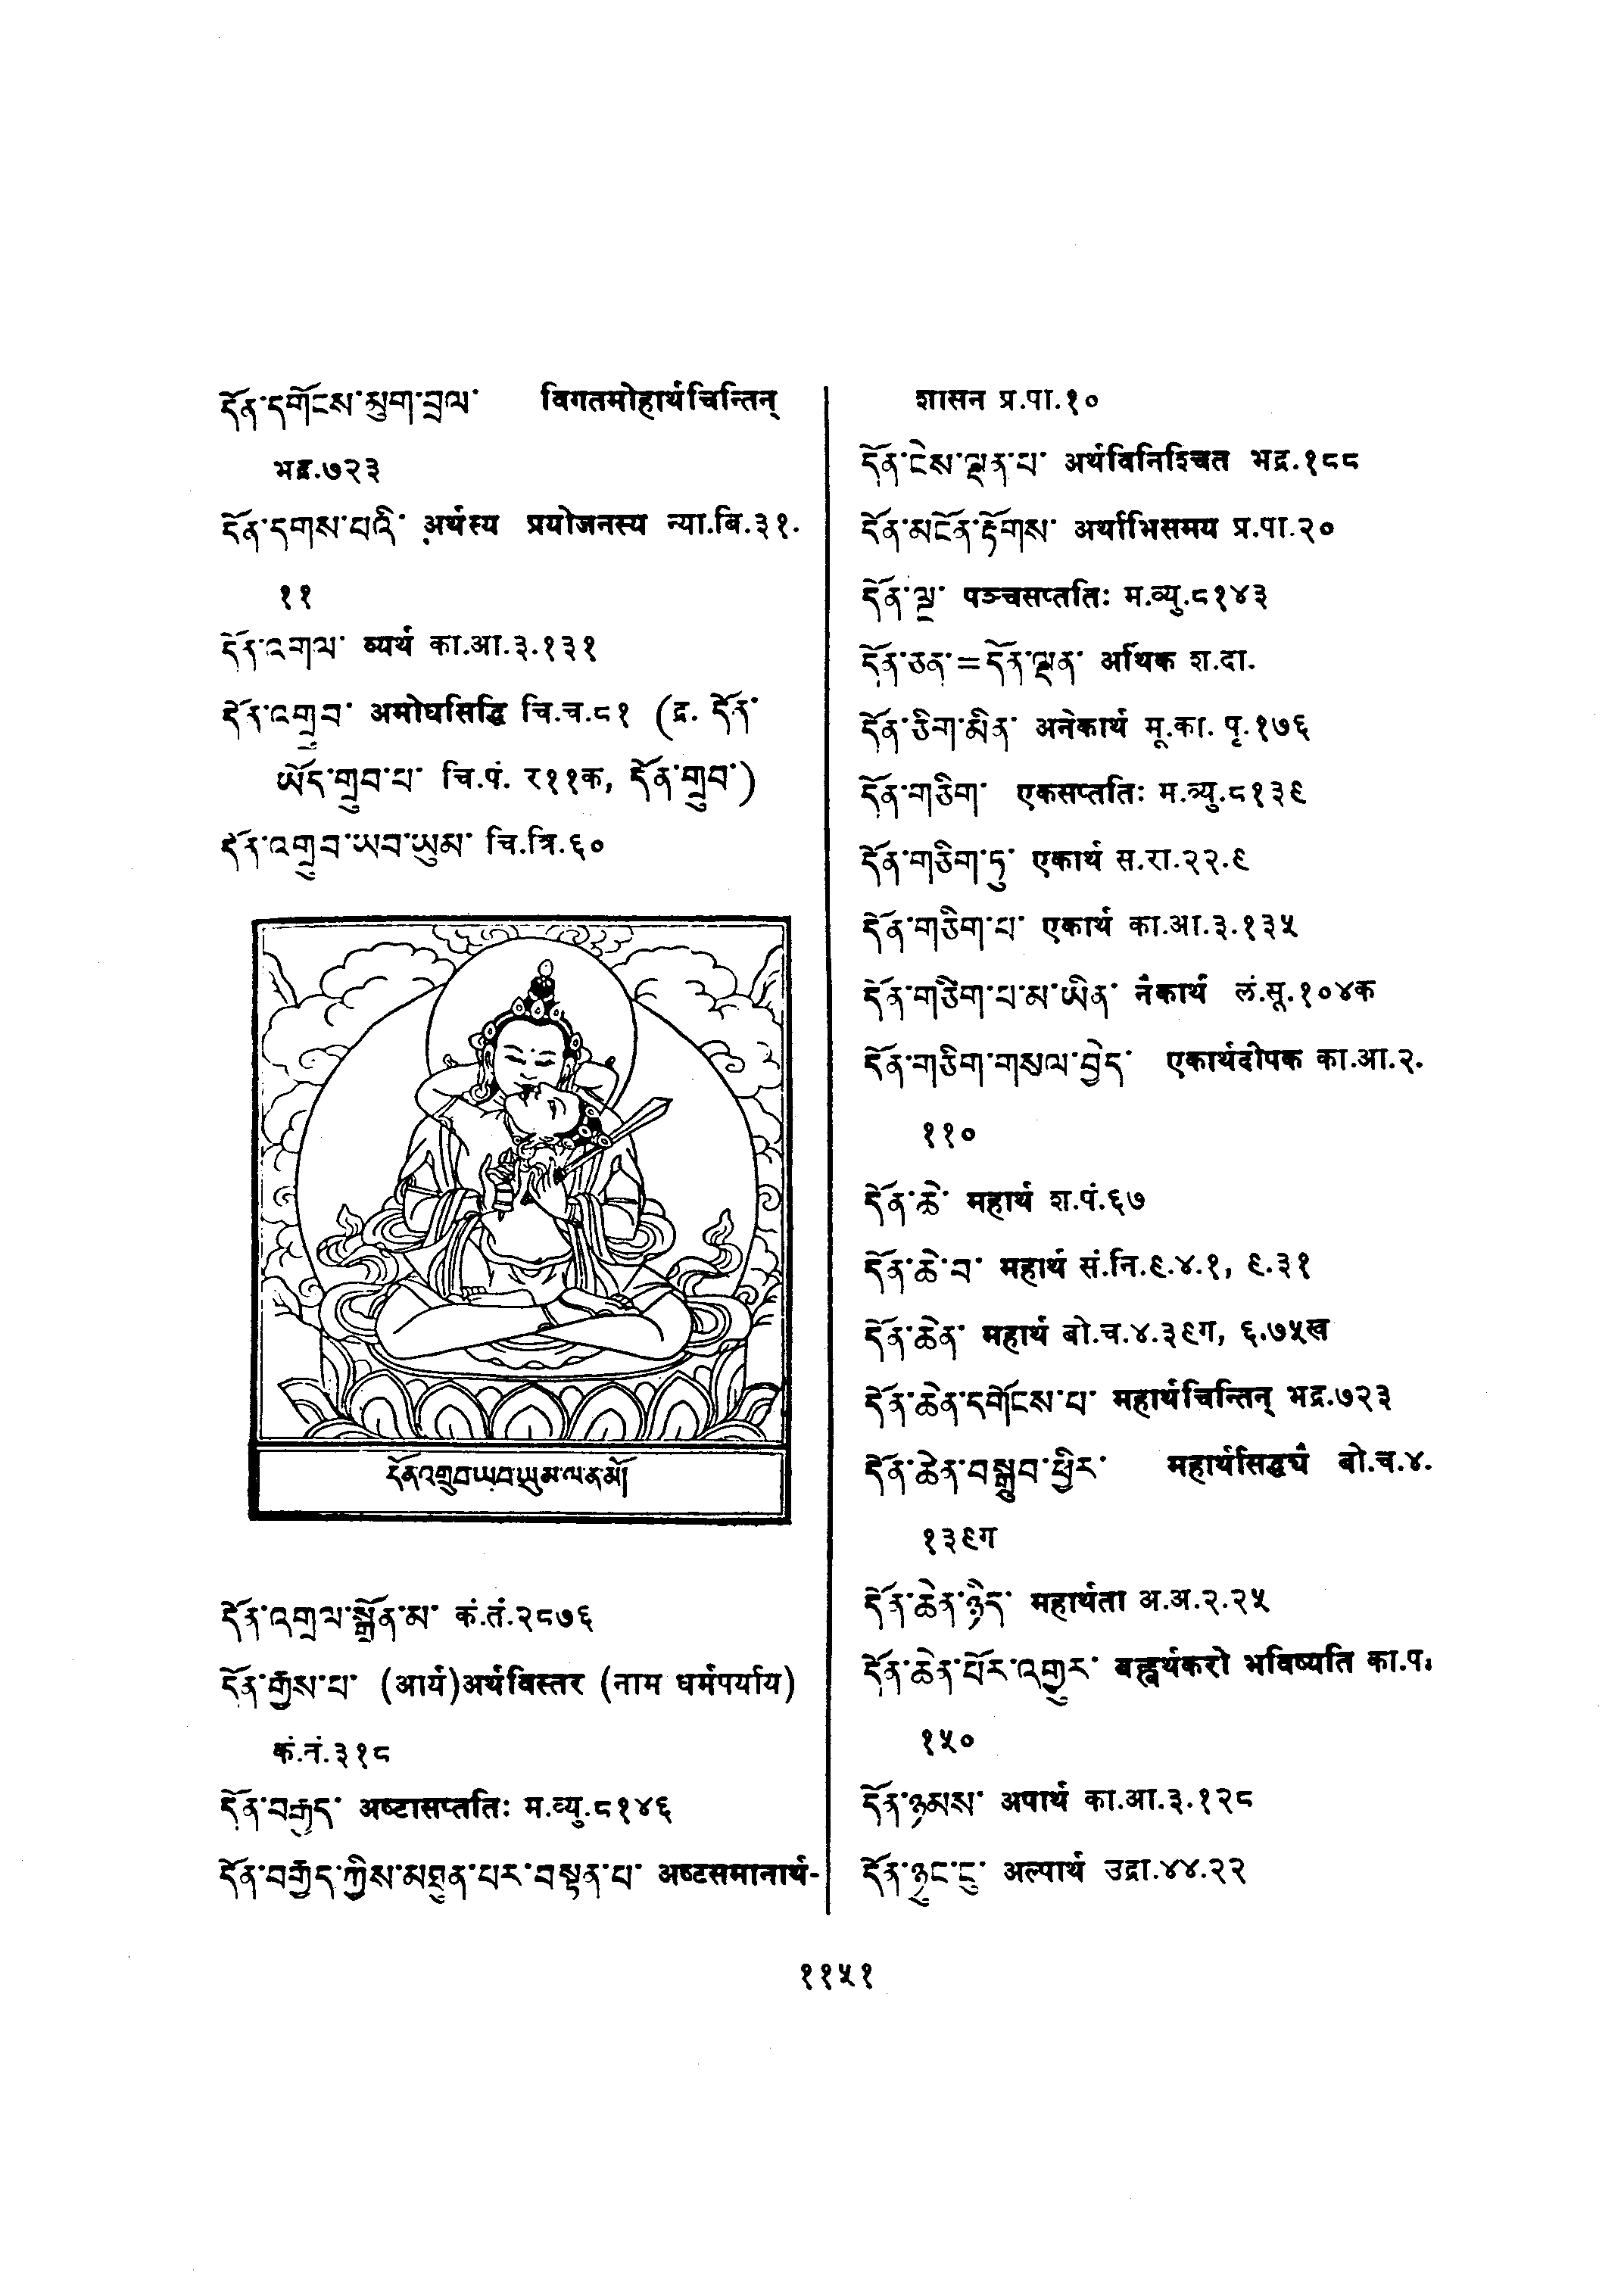 དོན་དགོངས་མུག་བྲལ་ विगतमोहार्थचिन्तिन्
भद्र.७२३
དོན་དགས་པའི་ अर्थस्य प्रयोजनस्य न्या.बि.३१.
११
དོན་འགལ་ व्यर्थ का.आ.३.१३१
དོན་འགྲུབ་ अमोघसिद्धि चि.च.८१ (द्र. དོན་
ཡོད་གྲུབ་པ་ चि.पं. र११क, དོན་གྲུབ་)
དོན་འགྲུབ་ཡབ་ཡུམ་ चि.त्रि.६०
དོན་འགྲུབ་ཡབ་ཡུམ་ལ་ན་མོ།
དོན་འགྲལ་སྒྲོན་མ་ कं.तं.२८७६
དོན་རྒྱས་པ་ (आर्य)अर्थविस्तर (नाम धर्मपर्याय)
कं.नं.३१८
དོན་བརྒྱད་ अष्टासप्ततिः म.व्यु.८१४६
དོན་བརྒྱད་ཀྱིས་མཐུན་པར་བསྟན་པ་ अष्टसमानार्थ-
शासन प्र.पा.१०
དོན་ངེས་ལྡན་པ་ अर्थविनिश्चित भद्र.१८८
དོན་མངོན་རྟོགས་ अर्थाभिसमय प्र.पा.२०
དོན་ལྔ་ पञ्चसप्ततिः म.व्यु.८१४३
དོན་ཅན་=དོན་ལྡན་ अर्थिक श.दा.
དོན་ཅིག་མིན་ अनेकार्थ मू.का. पृ.१७६
དོན་གཅིག་ एकसप्ततिः म.व्यु.८१३९
དོན་གཅིག་ཏུ་ एकार्थ स.रा.२२.९
དོན་གཅིག་པ་ एकार्थ का.आ.३.१३५
དོན་གཅིག་པ་མ་ཡིན་ नैकार्थ लं.सू.१०४क
དོན་གཅིག་གསལ་བྱེད་ एकार्थदीपक का.आ.२.
११०
དོན་ཆེ་ महार्थ श.पं.६७
དོན་ཆེ་བ་ महार्थ सं.नि.९.४.१, ९.३१
དོན་ཆེན་ महार्थ बो.च.४.३९ग, ६.७५ख
དོན་ཆེན་དགོངས་པ་ महार्थचिन्तिन् भद्र.७२३
དོན་ཆེན་བསྒྲུབ་ཕྱིར་ महार्थसिद्ध्यै बो.च.४.
१३९ग
དོན་ཆེན་ཉིད་ महार्थता अ.अ.२.२५
དོན་ཆེན་པོར་འགྱུར་ बह्वर्थकरो भविष्यति का.प.
१५०
དོན་ཉམས་ अपार्थ का.आ.३.१२८
དོན་ཉུང་ངུ་ अल्पार्थ उद्रा.४४.२२
११५१